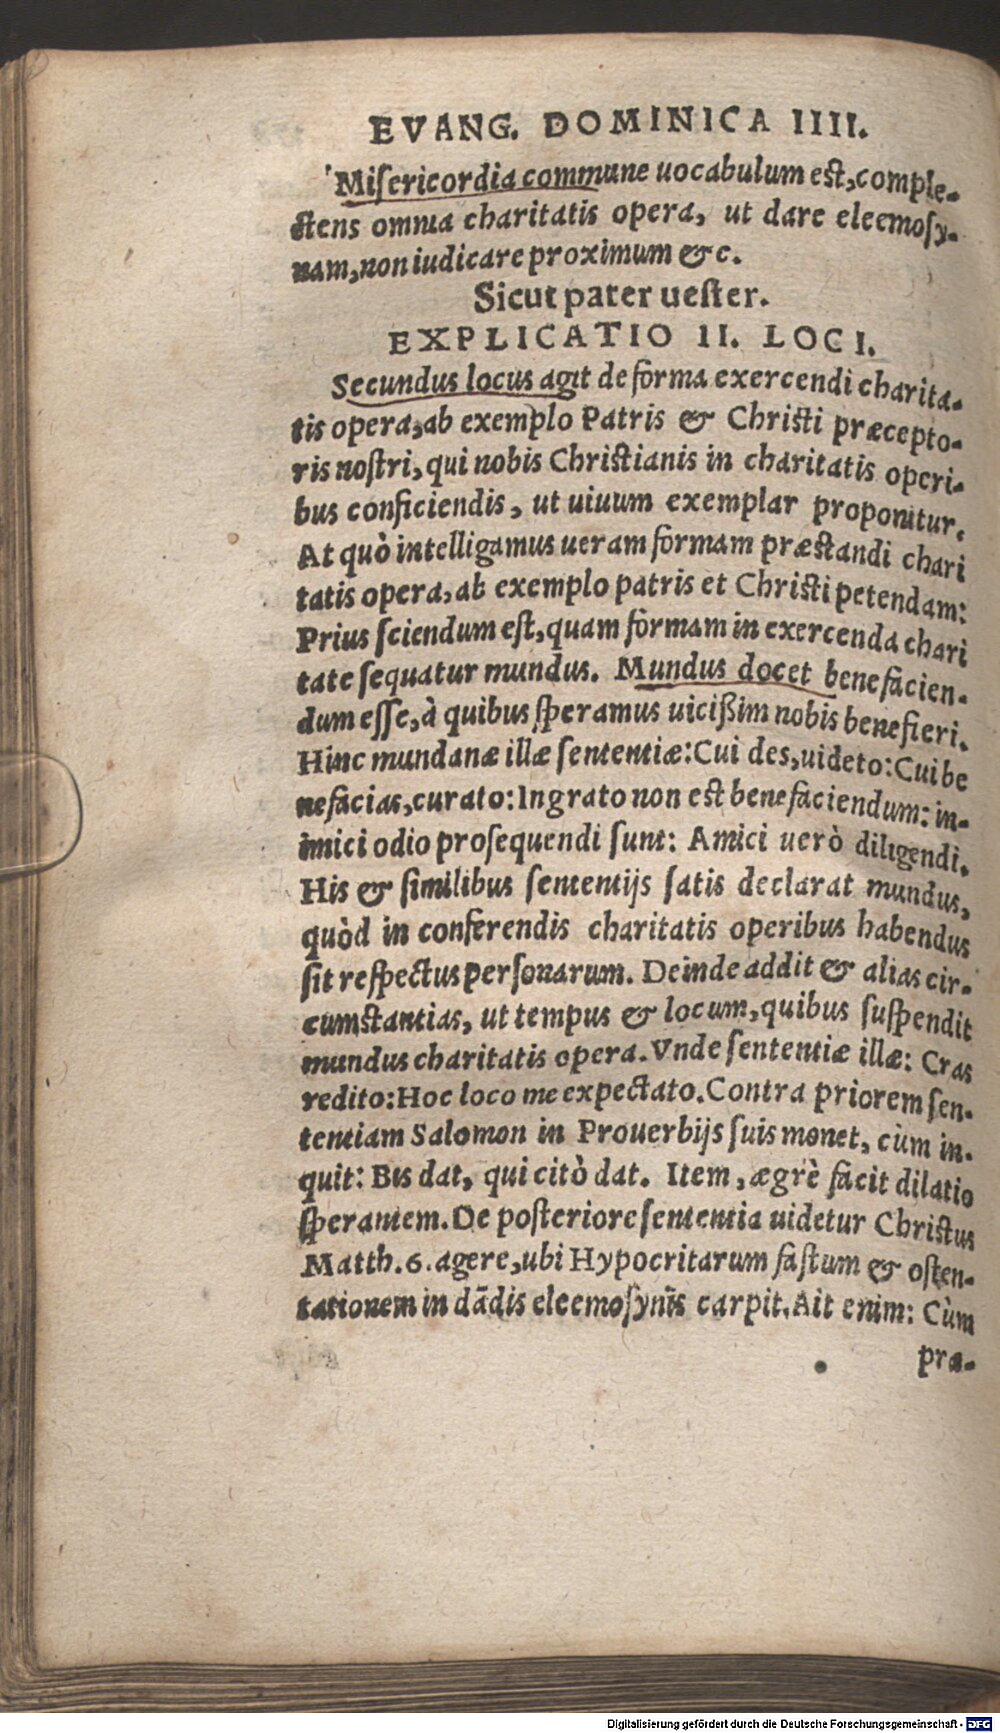 EVANG. DOMINICA IIII.
Misericordia commune uocabulum est, comple-
ctens omnia charitatis opera, ut dare eleemosy-
nam, non iudicare proximum & c.
Sicut pater uester.
EXPLICATIO II. LOCI.
Secundus locus agit de forma exercendi charita-
tis opera, ab exemplo Patris & Christi præcepto-
ris nostri, qui nobis Christianis in charitatis operi-
bus conficiendis, ut uiuum exemplar proponitur.
At quò intelligamus ueram formam præstandi chari
tatis opera, ab exemplo patris et Christi petendam:
Prius sciendum est, quam formam in exercenda chari
tate sequatur mundus. Mundus docet benefacien-
dum esse, à quibus speramus uicißim nobis benefieri.
Hinc mundanæ illæ sententiæ: Cui des, uideto: Cui be
nefacias, curato: Ingrato non est benefaciendum: in-
imici odio prosequendi sunt: Amici uerò diligendi.
His & similibus sententijs satis declarat mundus,
quòd in conferendis charitatis operibus habendus
sit respectus personarum. Deinde addit & alias cir-
cumstantias, ut tempus & locum, quibus suspendit
mundus charitatis opera. Vnde sententiæ illæ: Cras
redito: Hoc loco me expectato. Contra priorem sen-
tentiam Salomon in Prouerbijs suis monet, cùm in-
quit: Bis dat, qui citò dat. Item, ægrè facit dilatio
sperantem. De posteriore sententia uidetur Christus
Matth. 6. agere, ubi Hypocritarum fastum & osten-
tationem in dādis eleemosynis carpit. Ait enim: Cùm
præ-
Digitalisierung gefördert durch die Deutsche Forschungsgemeinschaft - DFG